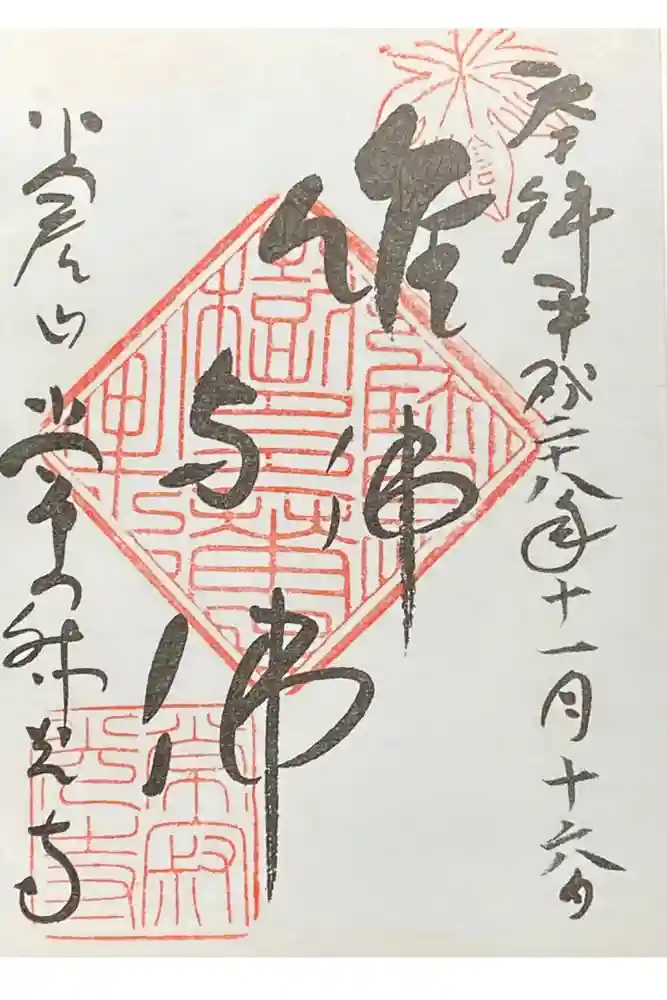 奉拝平成二十八年十一月十六日
唯佛
与佛
小倉山常寂光寺
常寂
光寺